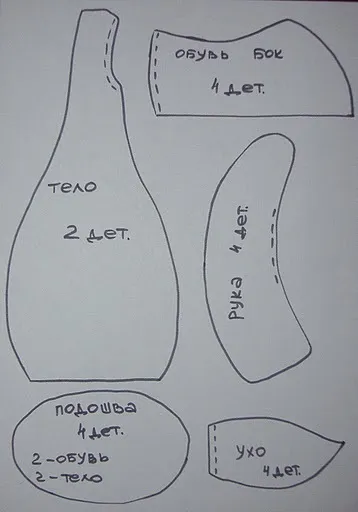 ОБУВЬ БОК
4 дет.
ТЕЛО
2 дет.
РУКА 4 дет.
ПОДОШВА
4 дет.
2-ОБУВЬ
2-ТЕЛО
УХО
4 дет.